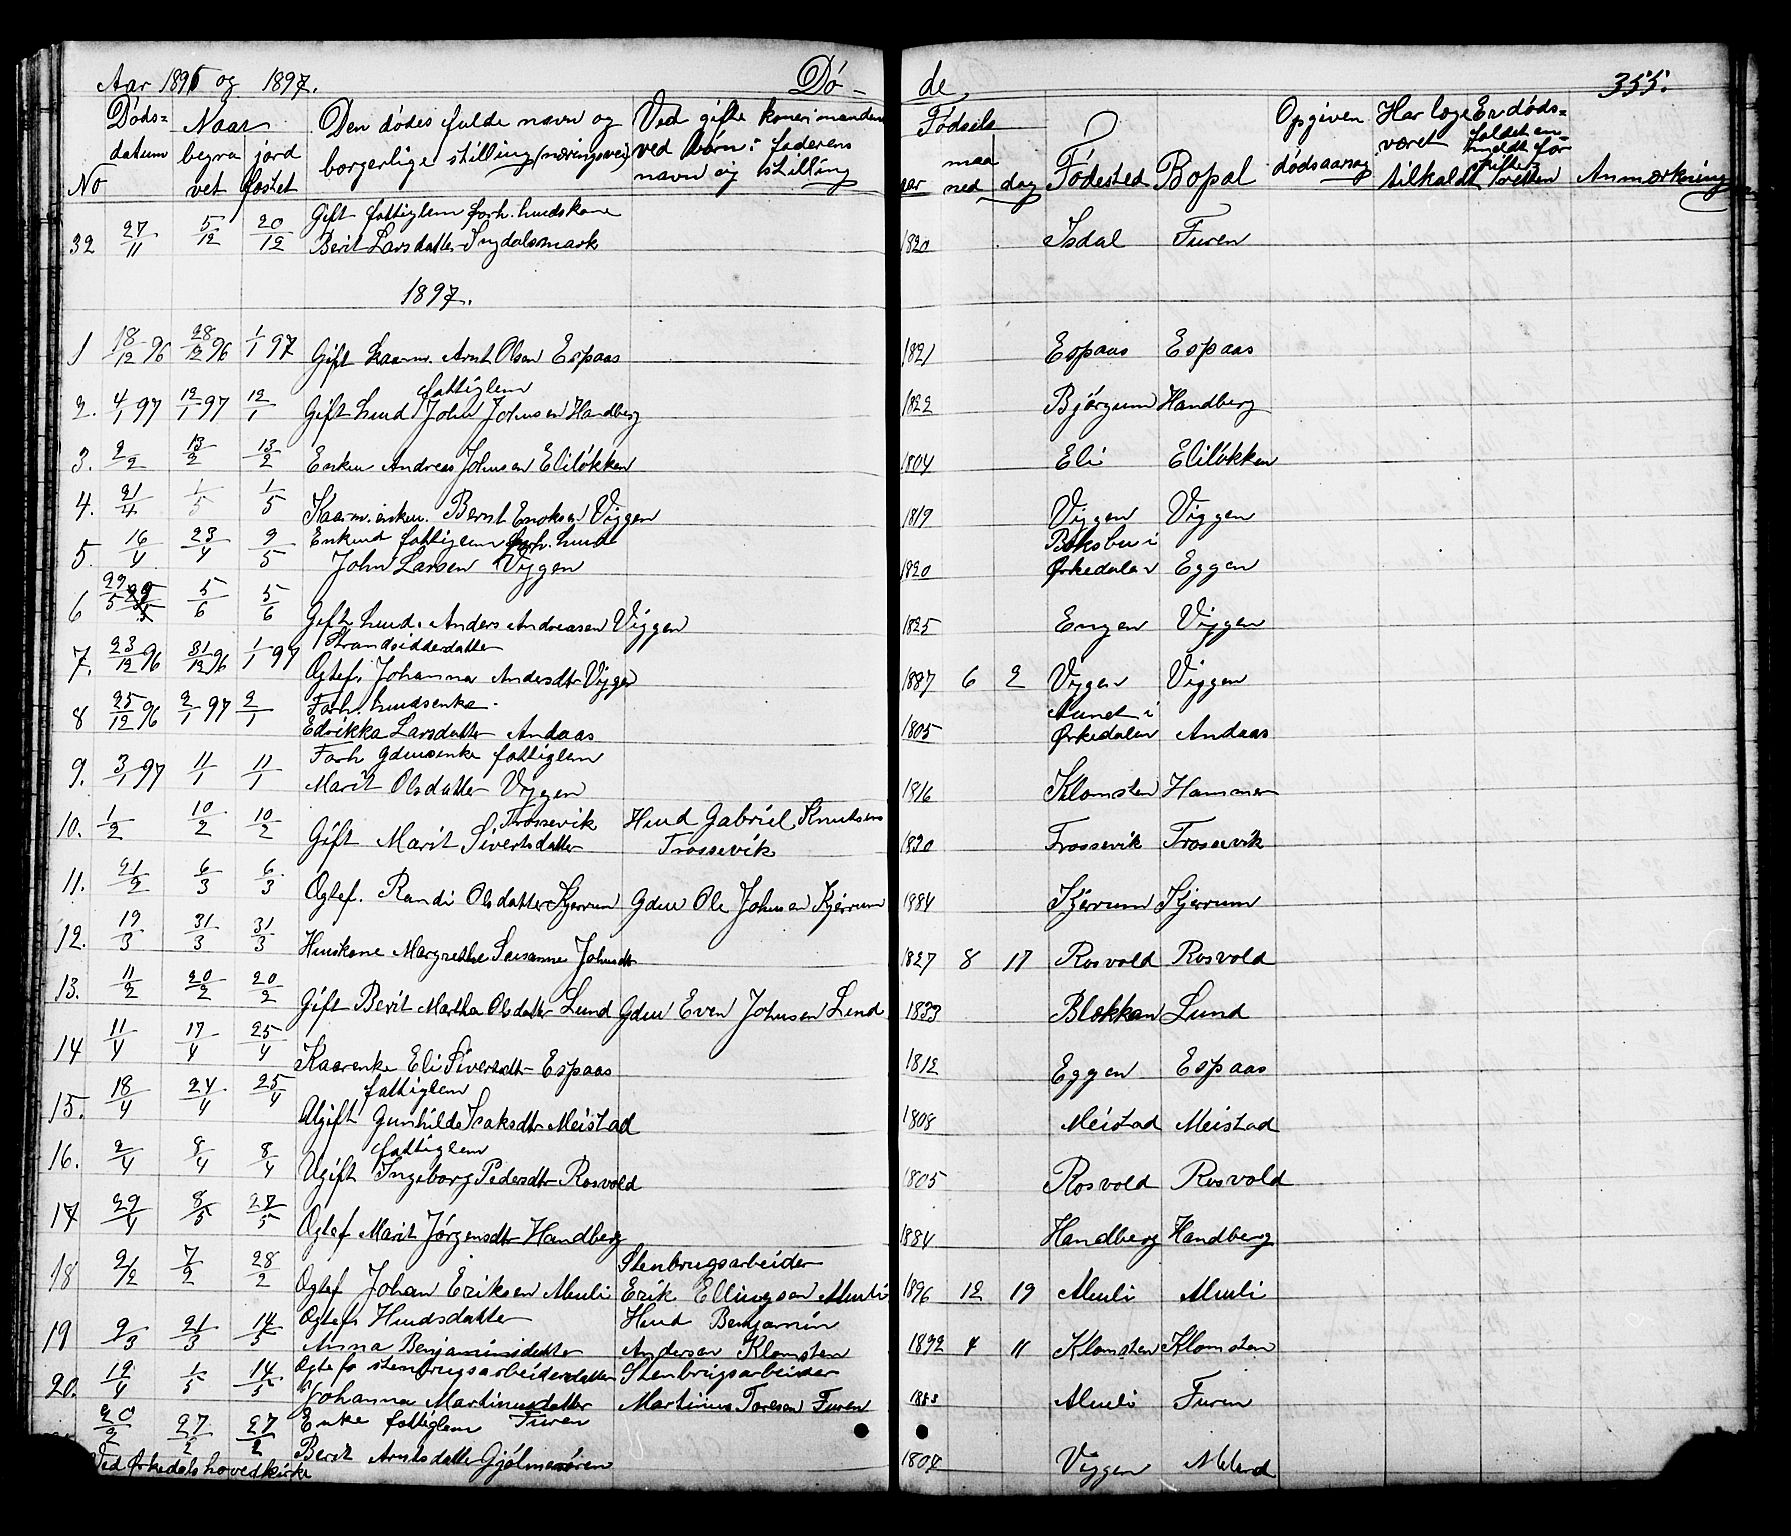 Aar 1896 og 1897. Dö- de, 355.
Döds= datum Naar begra vet jord fæstet Den dödes fulde navn og borgerlige stilling (næringsvei) Ved gifte koner: manden ved börn: faderens navn og stilling Födsels aar maa ned dag Födested Bopæl Opgiven dödsaarsag Har læge været tilkaldt Er döds= faldet an- meldt for skifte- retten Anmærkning
No
32 27/11 5/12 20/12 Gift fattiglem forh. husdskone
Berit Larsdatter Ingdalsmark 1820 Isdal Furen
1897.
1 18/12 96 28/12 96 1/1 97 Gift kaarm. Arnt Olsen Espaas 1821 Espaas Espaas
fattiglem
2. 4/1 97 12/1 97 12/1 Gift husd John Johnsen Handberg 1822 Bjørgum Handberg
3. 2/2 13/2 13/2 Enkem Andreas Johnsen Eliløkken 1804 Eli Eliløkken
4. 21/4 1/5 1/5 Kaarm. enkem. Bernt Enoksen Viggen 1819 Viggen Viggen
5. 16/4 23/4 9/5 Enkemd fattiglem forh. husmd
John Larsen Viggen 1820 Boksbu i Ørkedalen Eggen
6 29/5 5/6 5/6 Gift husd. Anders Andreasen Viggen 1825 Engen Viggen
Strandsidderdatter
7. 23/12 96 31/12 96 1/1 97 Ogtef. Johanna Andersdtr Viggen 1887 6 2 Viggen Viggen
8 25/12 96 2/1 97 2/1 Forh. husdsenke.
Edrikka Larsdatter Andaas 1805 Aunet i Ørkedalen Andaas
9. 3/1 97 11/1 11/1 Forh gdmsenke fattiglem
Marit Olsdatter Viggen 1816 Klomsten Hammer
Trossevik
10. 1/2 10/2 10/2 Gift Marit Sivertsdatter Husd Gabriel Knutsens Trossevik 1820 Trossevik Trossevik
11. 21/2 6/3 6/3 Ogtef. Randi Olsdatter Kjerrum Gdm Ole Johnsen Kjerrum 1884 Kjerrum Kjerrum
12. 19/3 31/3 31/3 Huuskone Margrethe Susanne Johnsdtr 1827 8 17 Rosvold Rosvold
13. 11/2 20/2 20/2 Gift Berit Martha Olsdatter Lund Gdm Even Johnsen Lund 1833 Blokkan Lund
14 11/4 17/4 25/4 Kaarenke Eli Sivertsdtr Espaas 1812 Eggen Espaas
fattiglem
15. 18/4 24/4 25/4 Ugift Gunhilde Isaksdtr Meistad 1808 Meistad Meistad
fattiglem
16. 2/4 8/4 8/4 Ugift Ingeborg Pedersdtr Rosvold 1805 Rosvold Rosvold
17 29/4 8/5 27/5 Ogtef Marit Jørgensdtr Handberg 1884 Handberg Handberg
18 2/2 7/2 28/2 Ogtef Johan Eriksen Mæli Stenbrugsarbeider Erik Ellingsen Mæli 1896 12 19 Mæli Mæli
19 9/3 21/3 14/5 Ogtefs Husdsdatter
Anna Benjaminsdatter Husd Benjamin Andersen Klomsten 1892 4 11 Klomsten Klomsten
20. 19/4 1/5 14/5 Ogtefs stenbrugsarbeiderdatter
Johanna Martinusdatter Furen Stenbrugsarbeider Martinus Toresen Furen 1883 Mæli Furen
20/2 27/2 27/2 Enke fattiglem
Berit Arntsdatter Gjølmesøren 1804 Viggen Melend
Ved Ørkedals hovedkirke